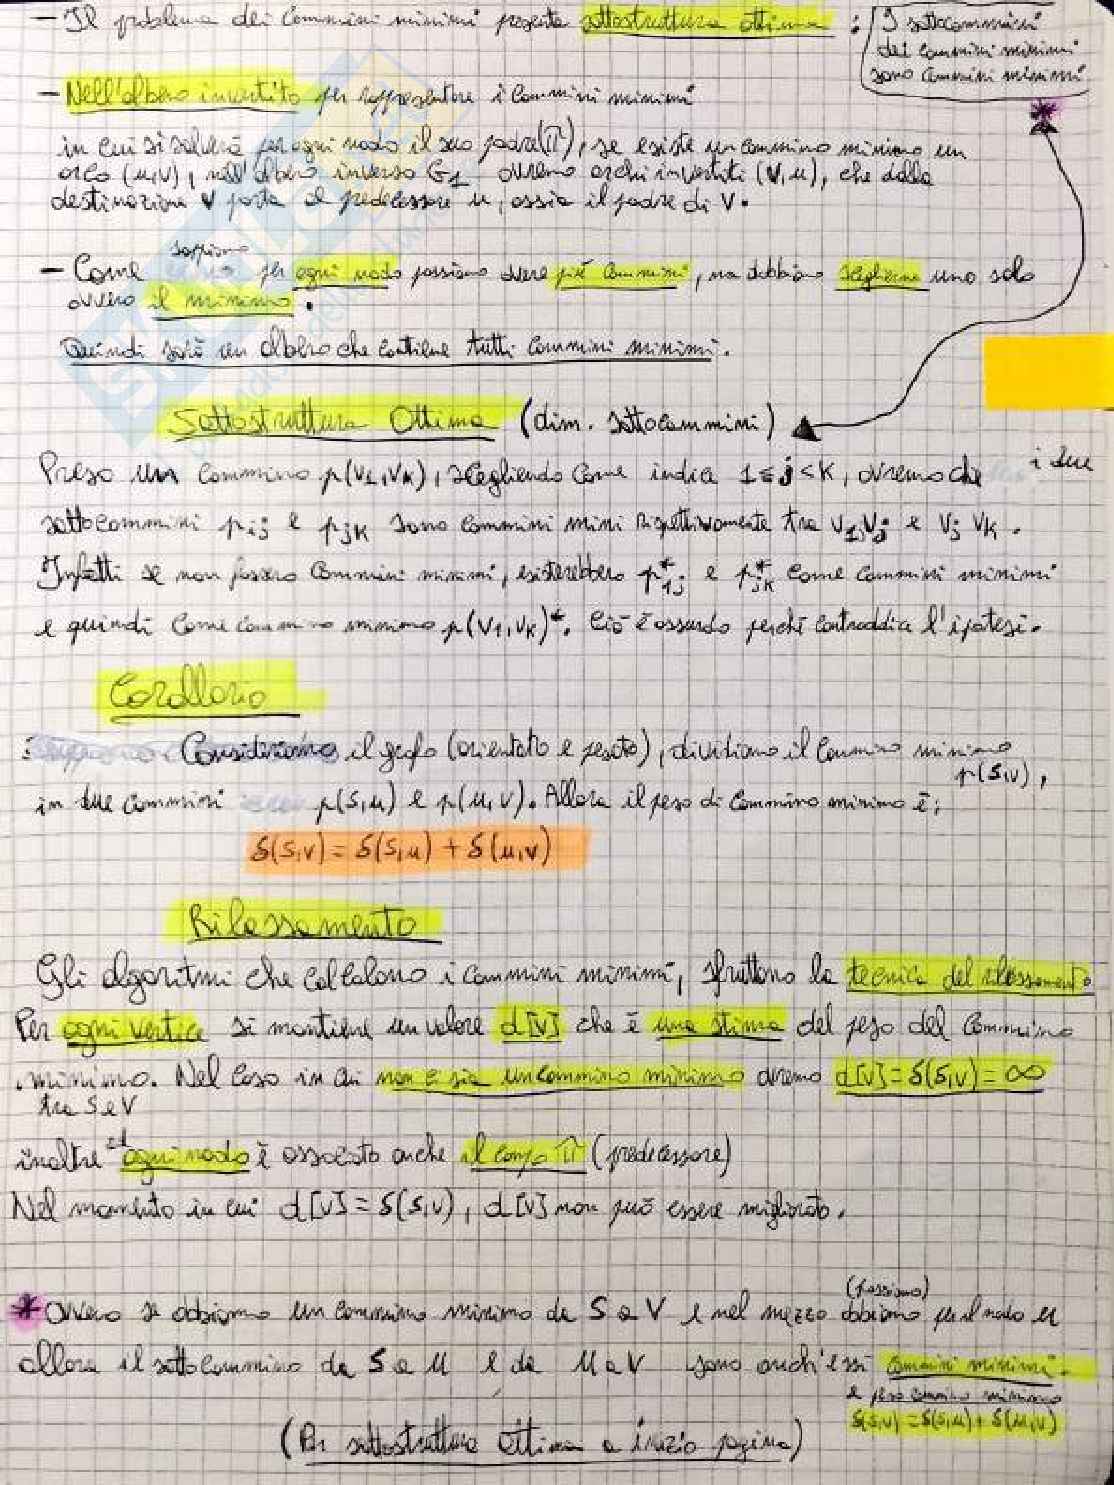 - Il problema dei Cammini minimi presenta sottostruttura ottima : I sottocammini
dei Cammini minimi
sono Cammini minimi
- Nell'albero invertito per rappresentare i Cammini minimi
in cui si salverà per ogni nodo il suo padre (π), se esiste un cammino minimo un
arco (u,v), nell'albero inverso G1 avremo archi invertiti (V,u), che dalla
destinazione V porta al predecessore u, ossia il padre di V.
- Come sappiamo per ogni nodo possiamo avere più Cammini, ma dobbiamo sceglierne uno solo
ovvero il minimo.
Quindi sarà un albero che contiene tutti Cammini minimi.
Sottostruttura Ottima (dim. sottocammini)
Preso un Cammino p(V1,VK), scegliendo come indice 1≤j≤K, avremo che i due
sottocammini p1j e pjK sono Cammini mini rispettivamente tra V1,Vj e Vj VK.
Infatti se non fossero Cammini minimi, esisterebbero p*1j e p*jK come Cammini minimi
e quindi come cammino minimo p(V1,VK)*. Ciò è assurdo perché contraddice l'ipotesi.
Corollario
Consideriamo il grafo (orientato e pesato), dividiamo il Cammino minimo
p(S,V),
in due Cammini p(S,u) e p(u,V). Allora il peso di Cammino minimo è:
δ(S,V) = δ(S,u) + δ(u,v)
Rilassamento
Gli algoritmi che calcolano i cammini minimi, sfruttano la tecnica del rilassamento
Per ogni vertice si mantiene un valore d[V] che è una stima del peso del Cammino
minimo. Nel caso in cui non ci sia un cammino minimo avremo d[V] = δ(S,V) = ∞
tra S e V
inoltre ad ogni nodo è associato anche il campo π (predecessore)
Nel momento in cui d[V] = δ(S,V), d[V] non può essere migliorato.
(passiamo)
* Ovvero se abbiamo un Cammino minimo da S a V e nel mezzo abbiamo per il nodo u
allora il sottocammino da S a u e da u a V sono anch'essi Cammini minimi.
e peso cammino minimo
δ(S,V) = δ(S,u) + δ(u,V)
(Per sottostruttura Ottima a inizio pagina)